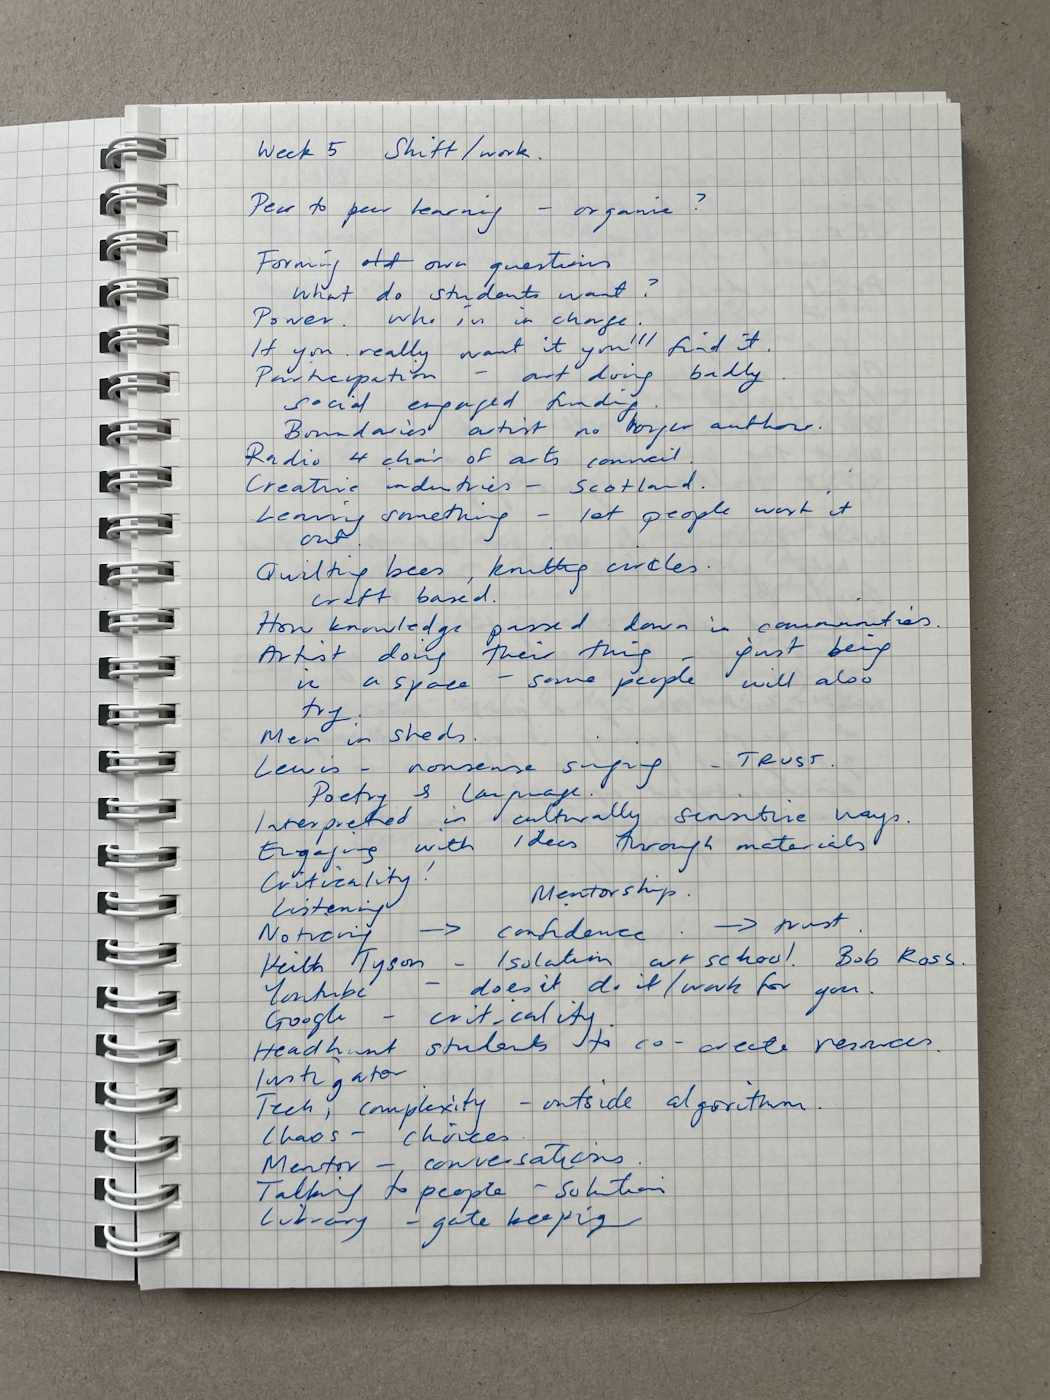 Week 5 Shift/work.
Peer to peer learning - organic?
Forming old own questions
What do students want?
Power. Who is in charge.
If you really want it you'll find it.
Participation - art doing badly.
Social engaged funding.
Boundaries artist no longer author.
Radio 4 chair of arts council.
Creative industries - Scotland.
Leaving something - let people work it
out.
Quilting bees, knitting circles.
craft based.
How knowledge passed down in communities.
Artist doing their thing - just being
in a space - some people will also
try.
Men in sheds.
Lewis - nonsense singing - TRUST.
Poetry & Language.
Interpreted in culturally sensitive ways.
Engaging with Ideas through materials
Criticality!
Listening Mentorship.
Noticing → confidence. → trust.
Keith Tyson - Isolation art school. Bob Ross.
Youtube - does it do it/work for you.
Google - criticality.
Headhunt students to co-create resources.
Instigator
Tech, complexity - outside algorithm.
Chaos - choices.
Mentor - conversations.
Talking to people - solution
Library - gate keeping